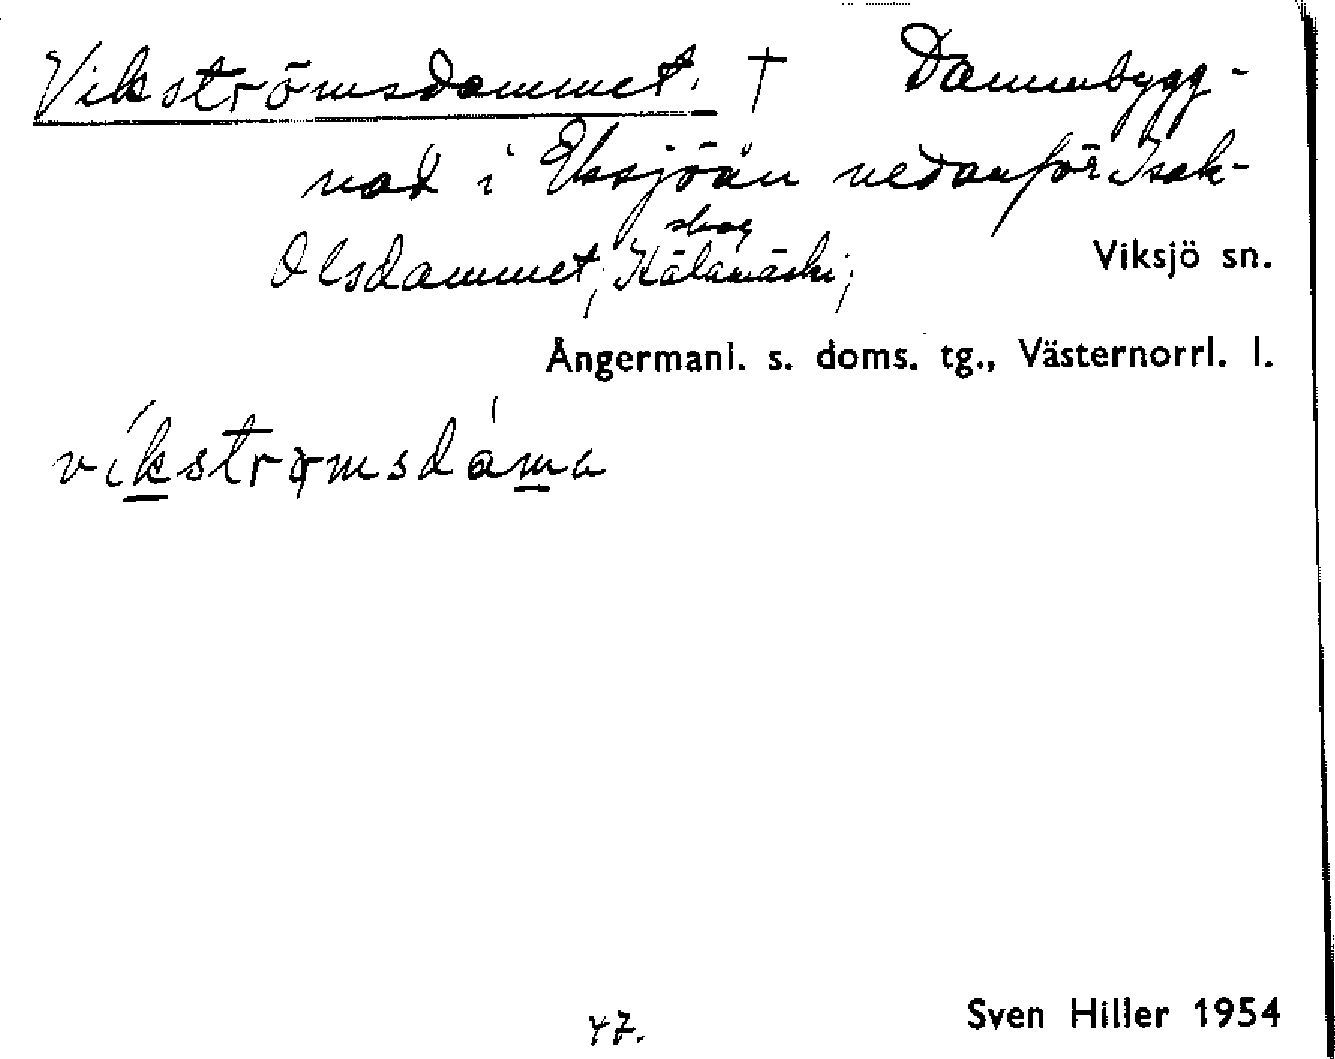 Vikströmsdammet. † Dammbygg-
nad i Eksjöån nedanför Isak-
Olsdammet, Kälamäski; skog
Viksjö sn.
Ångermanl. s. doms. tg., Västernorrl. l.
víkstrømsdáma
47.
Sven Hiller 1954